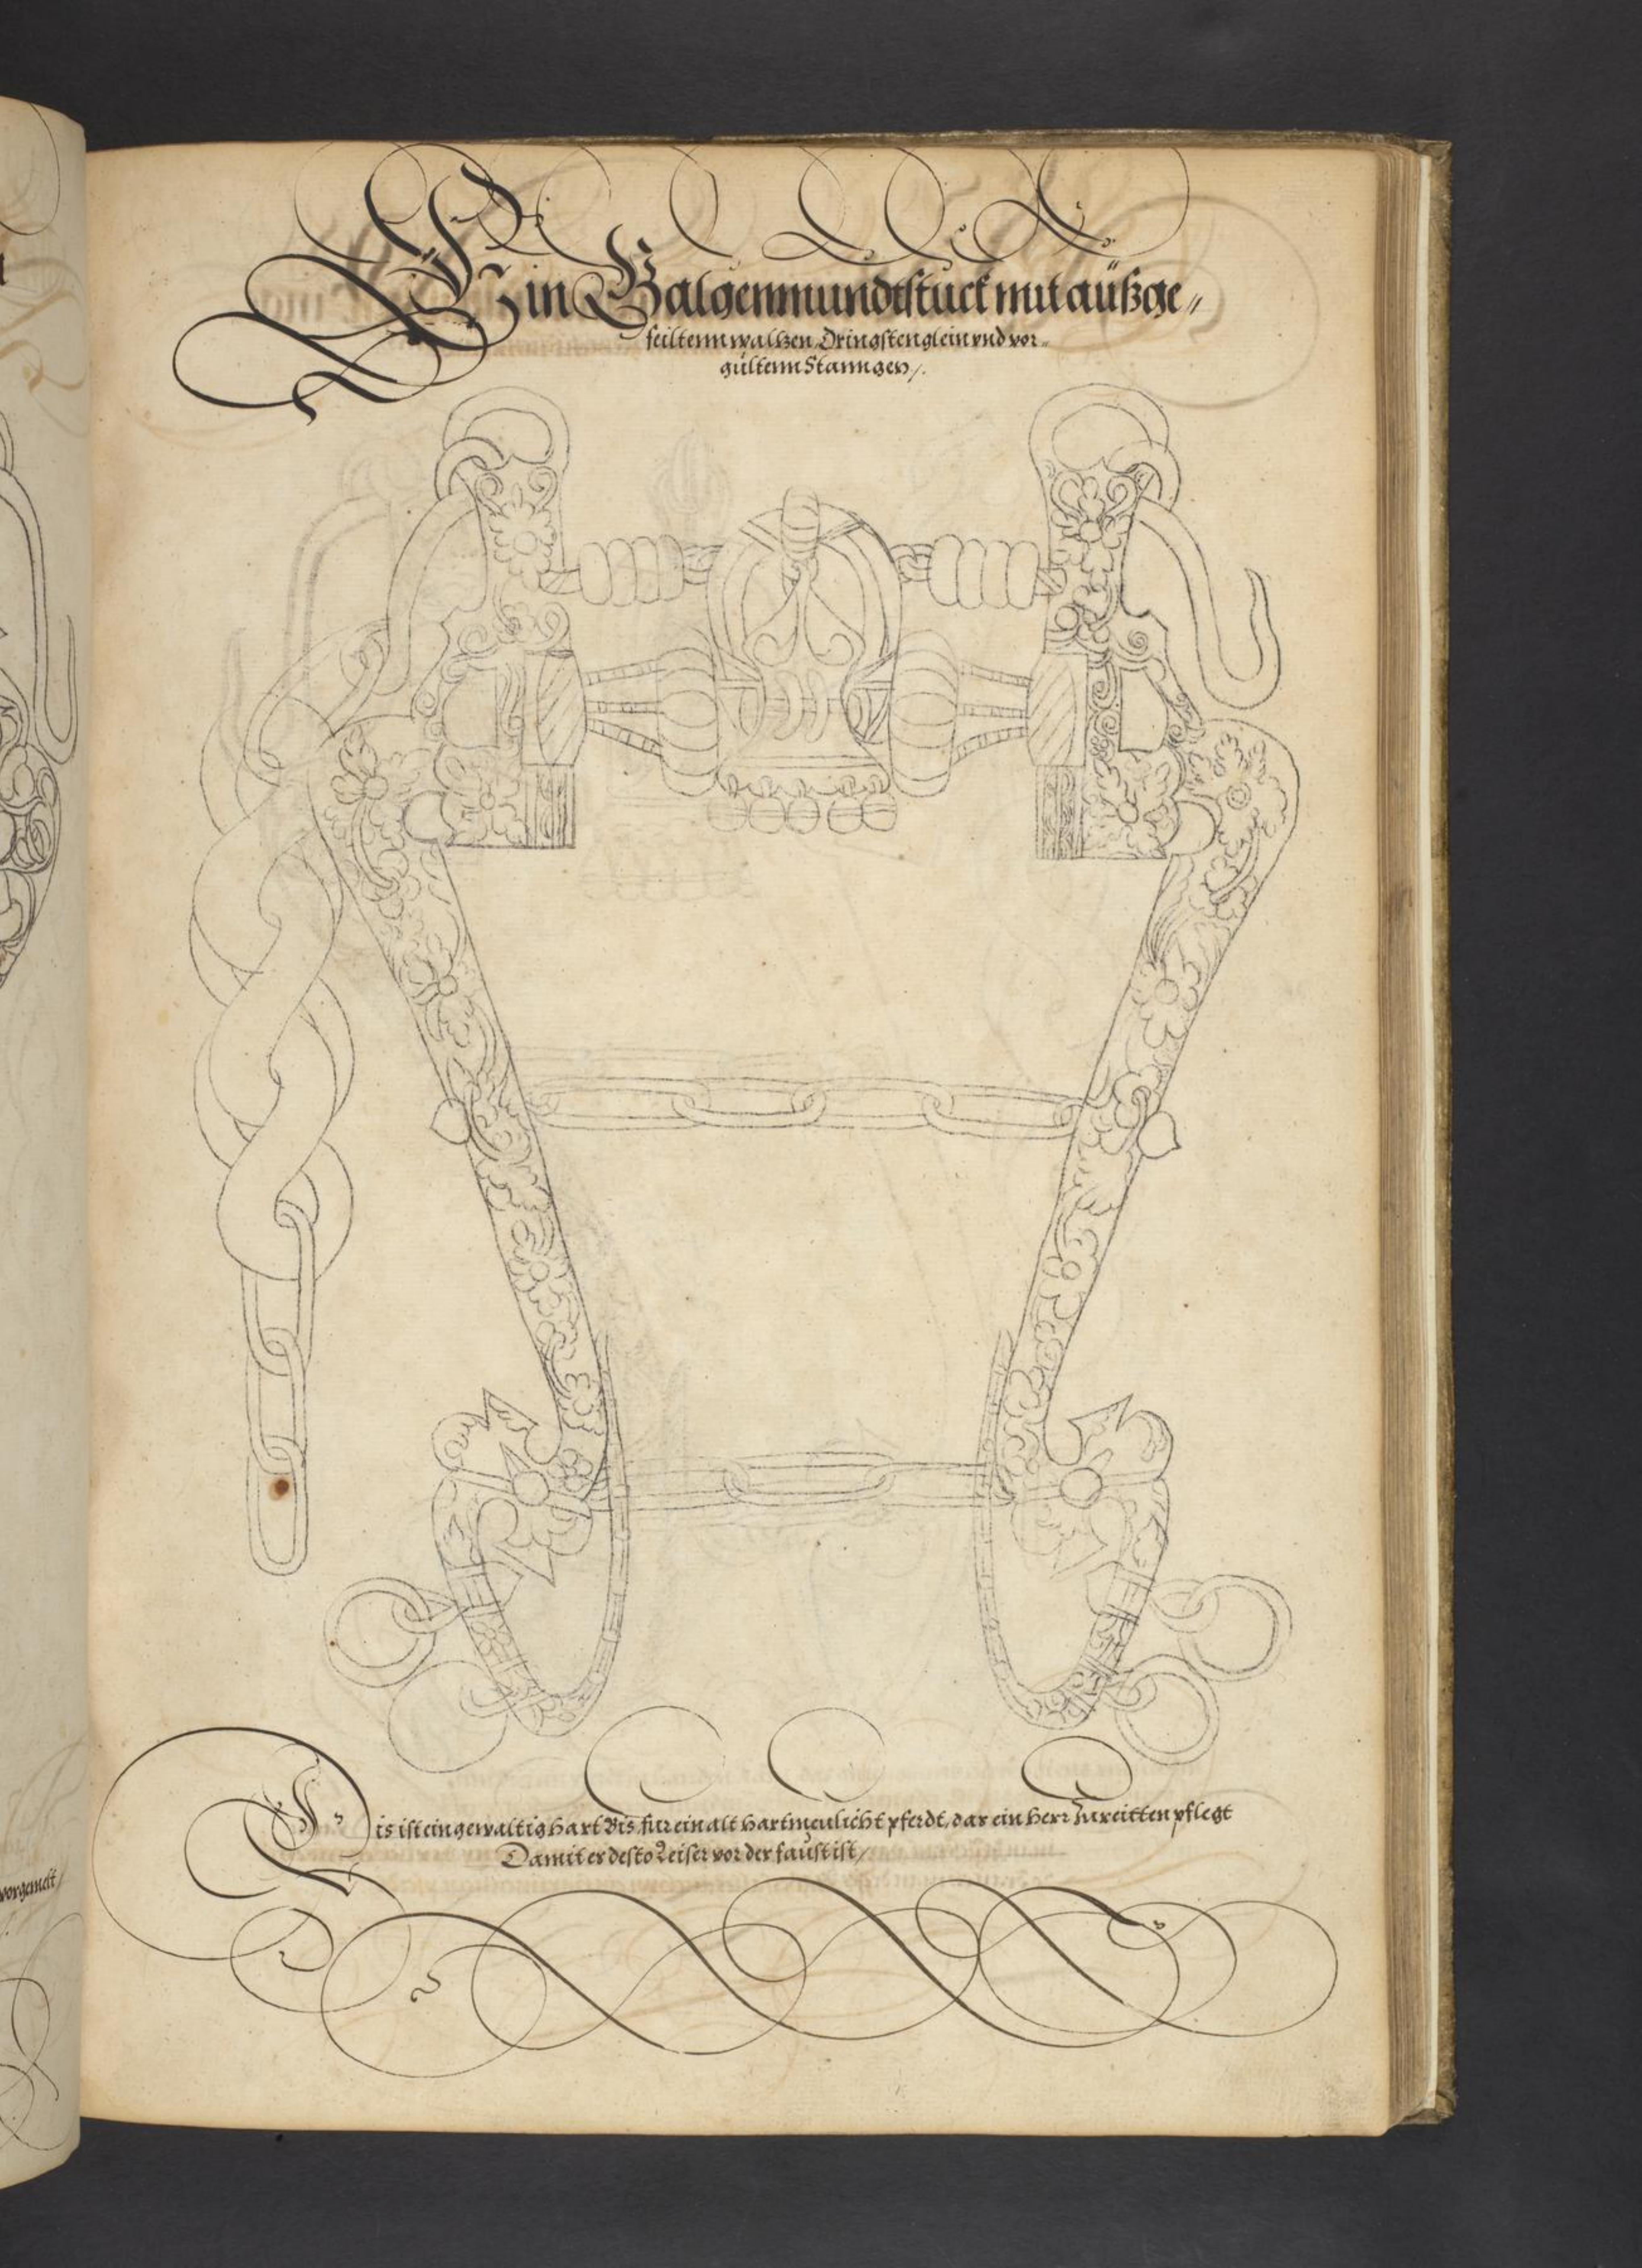 Ein Galgenmundtstuck mit außge„
feiltenn waltzen, Dringstenglein vnd vor„
gultenn Stanngen/.
Dis ist ein gewaltig hart Bis, fur ein alt hartmeulicht pferdt, dar ein herr zu reitten pflegt
Damit er desto leiser vor der faust ist/
vorgemelt/